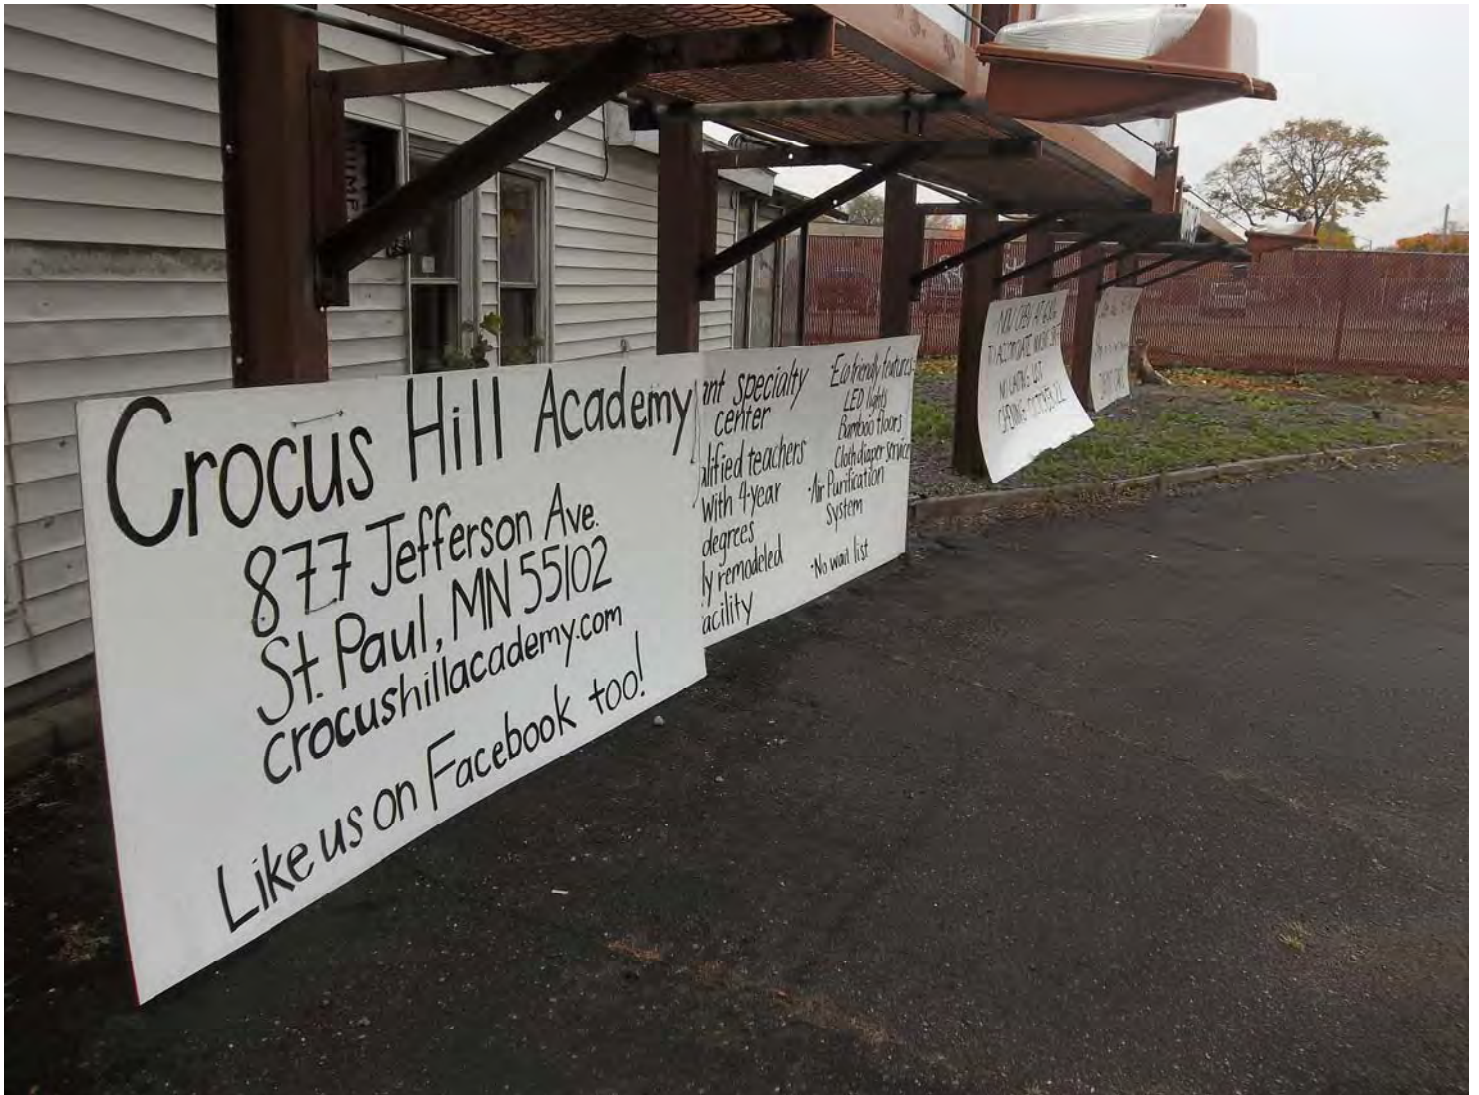 Crocus Hill Academy
877 Jefferson Ave.
St. Paul, MN 55102
crocushillacademy.com
Like us on Facebook too!
nt specialty
center
lified teachers
with 4-year
degrees
ly remodeled
acility
Eco friendly features
LED lights
Bamboo floors
Cloth diaper service
·Air Purification
system
·No wait list
NOW OPEN AT
TO ACCOMODATE
NO WAITING LIST
OPENING OCTOBER